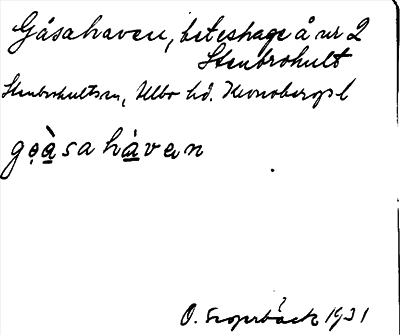 Gåsahaven, beteshage å nr 2
Stenbrohult
Stenbrohults sn, Allbo hd. Kronobergs l
gọàsa hàven
O. 1931